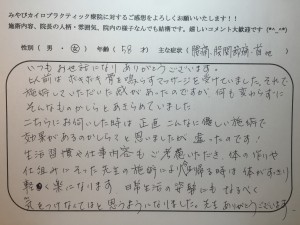 みやびカイロプラクティック療院に対するご感想をよろしくお願いいたします!!
施術内容、院長の人柄・雰囲気、院内の様子なんでも結構です。嬉しいコメント大歓迎です (*^-^*)
性別 ( 男・女 ) 年齢 ( 58 才 ) 主な症状 ( 腰痛、股関節痛・首他 )
いつもお世話になり ありがとうございます。
以前は ボキボキ 骨を鳴らす マッサージを受けていました。それで
施術していただいた感があったのですが 何も変わらずに
そんなものかしらと あきらめていました。
こちらにお伺いした時は 正直 こんなに優しい施術で
効果があるのかしらてと思いましたが 違ったのです!
生活習慣や仕事内容も ご考慮いただき、体の作りや
仕組みにそった先生の施術により 帰る時は体がすっきり
軽く楽になります 日常生活の姿勢にも なるべく
気をつけなくてはと思うようになりました。先生 ありがとうございます